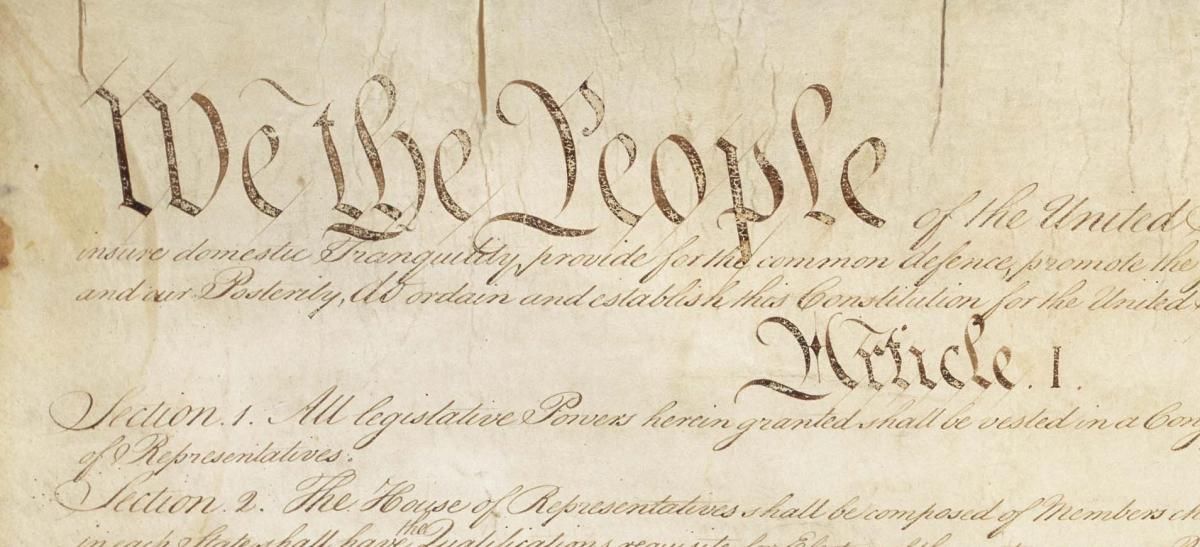 We the People of the United
insure domestic Tranquility, provide for the common defence, promote the
and our Posterity, do ordain and establish this Constitution for the United
Article. I.
Section. 1. All legislative Powers herein granted shall be vested in a Cong
of Representatives.
Section. 2. The House of Representatives shall be composed of Members ch
the
in each State shall have Qualifications requisite for